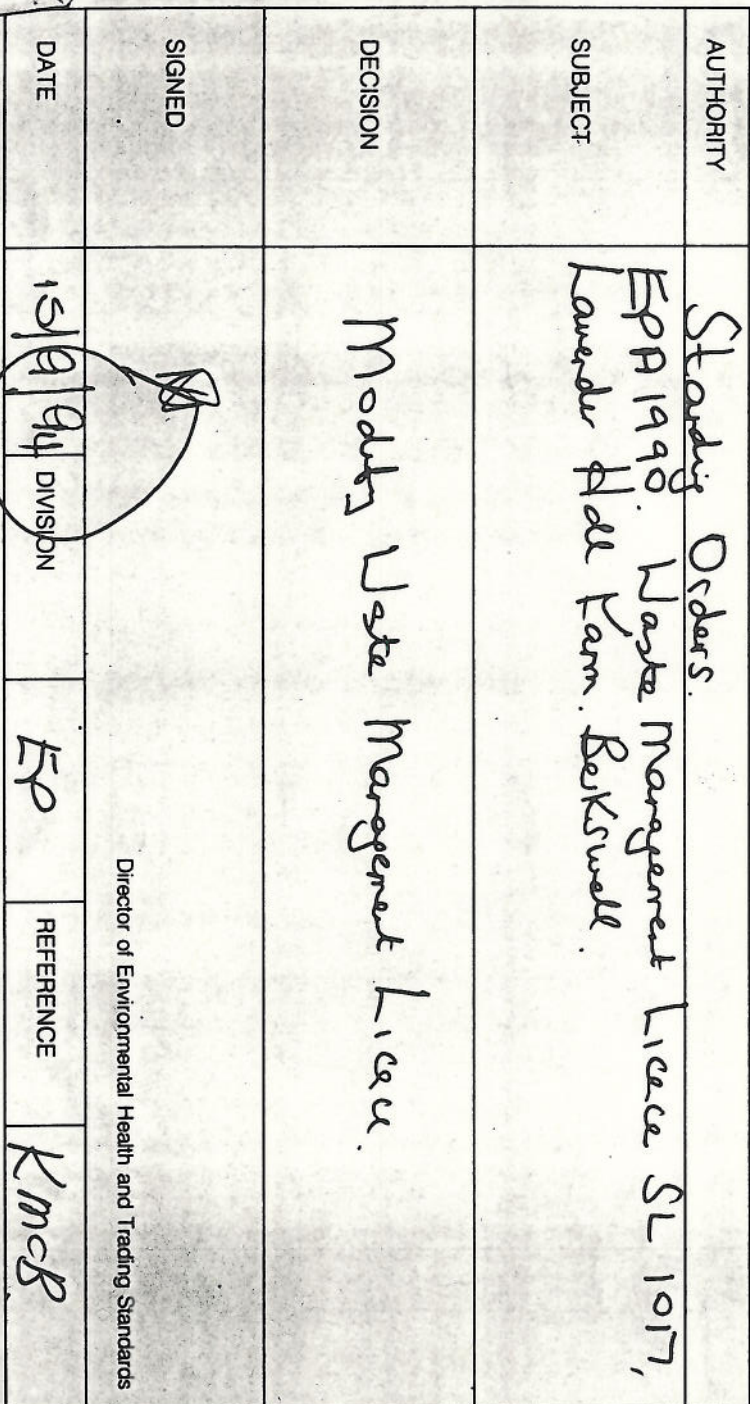 AUTHORITY
Standing Orders.
SUBJECT
EPA 1990. Waste Management Licence SL 1017,
Lavender Hall Farm. Berkswell.
DECISION
Modify Waste Management Licence.
SIGNED
Director of Environmental Health and Trading Standards
DATE
15/9/94
DIVISION
EP
REFERENCE
KMCB